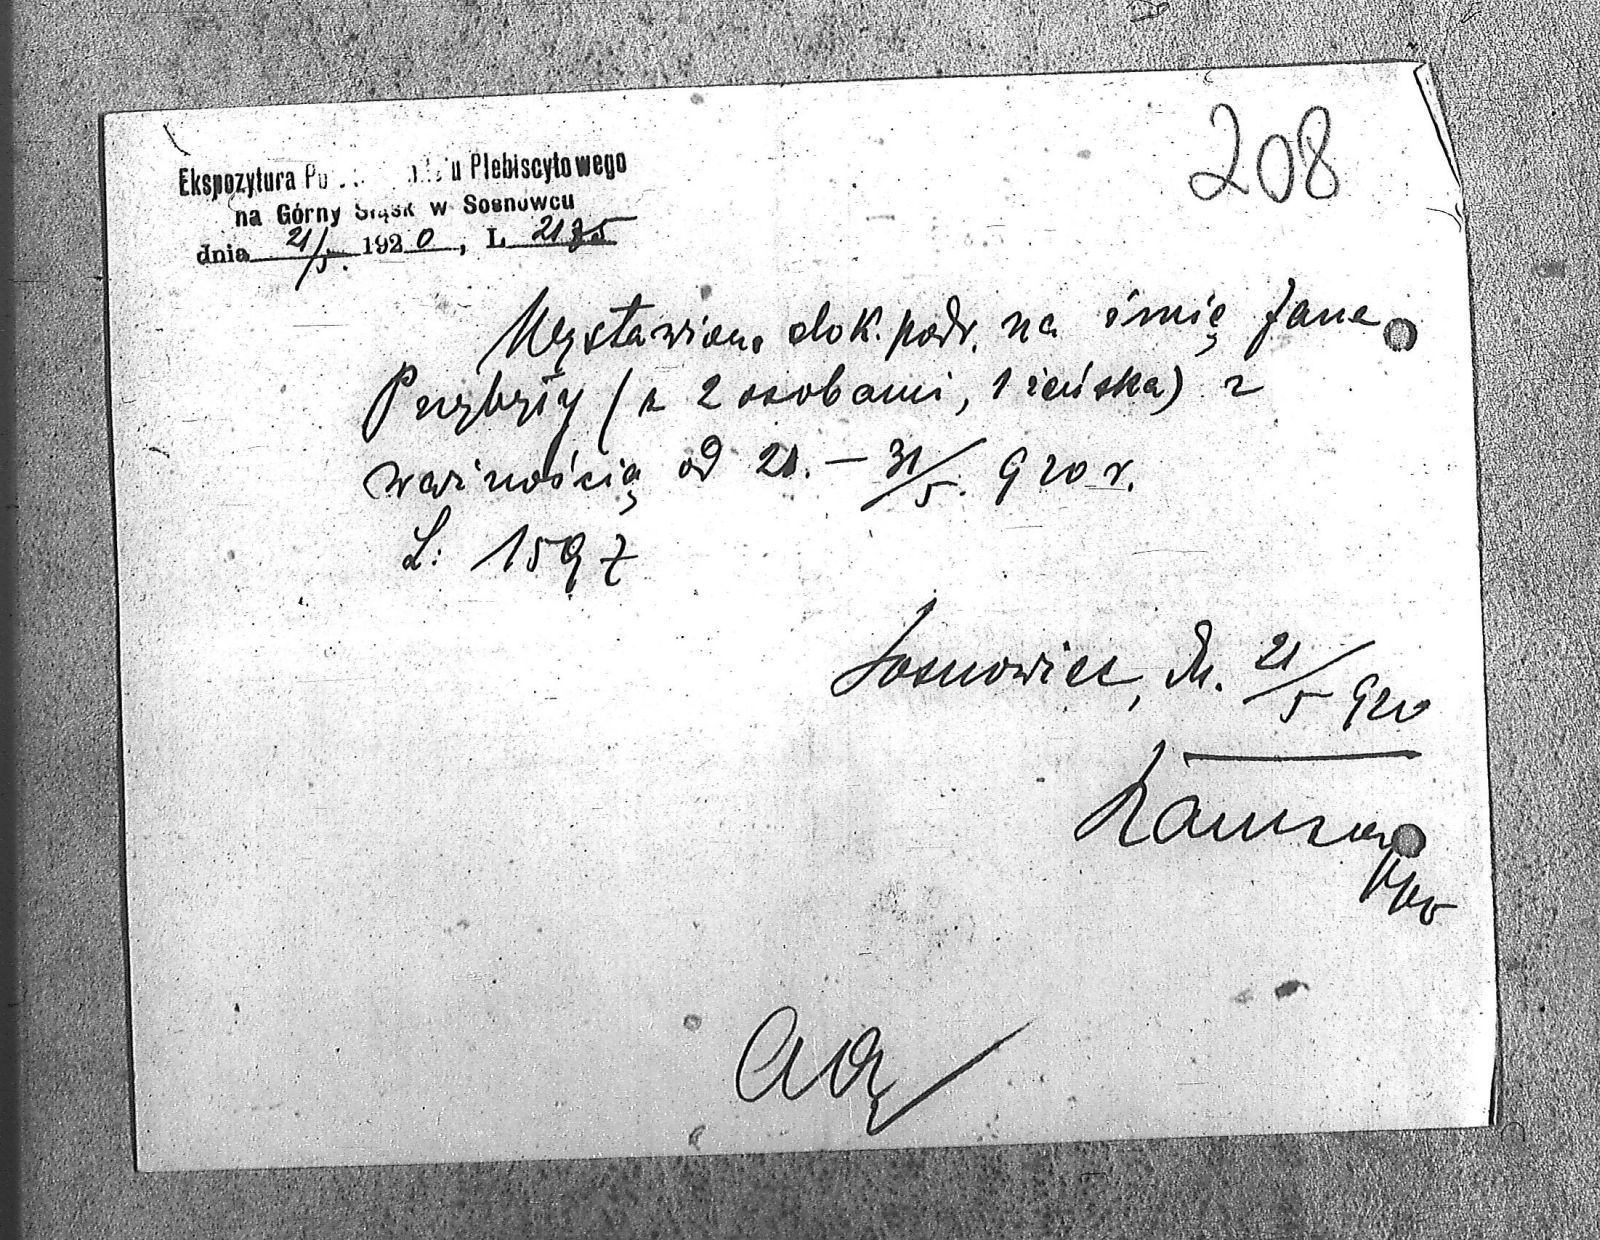 208
Ekspozytura Plebiscytowego
na Górny Śląsk w Sosnowcu
dnia 21/5. 1920, L. 2185
Wystawiono dok. podr. na imię Jana
Przybyły (z 2 osobami, 1 żeńska) z
ważnością od 21. – 31/5. 920 r.
L: 1597
Sosnowiec, dn. 21/5 920